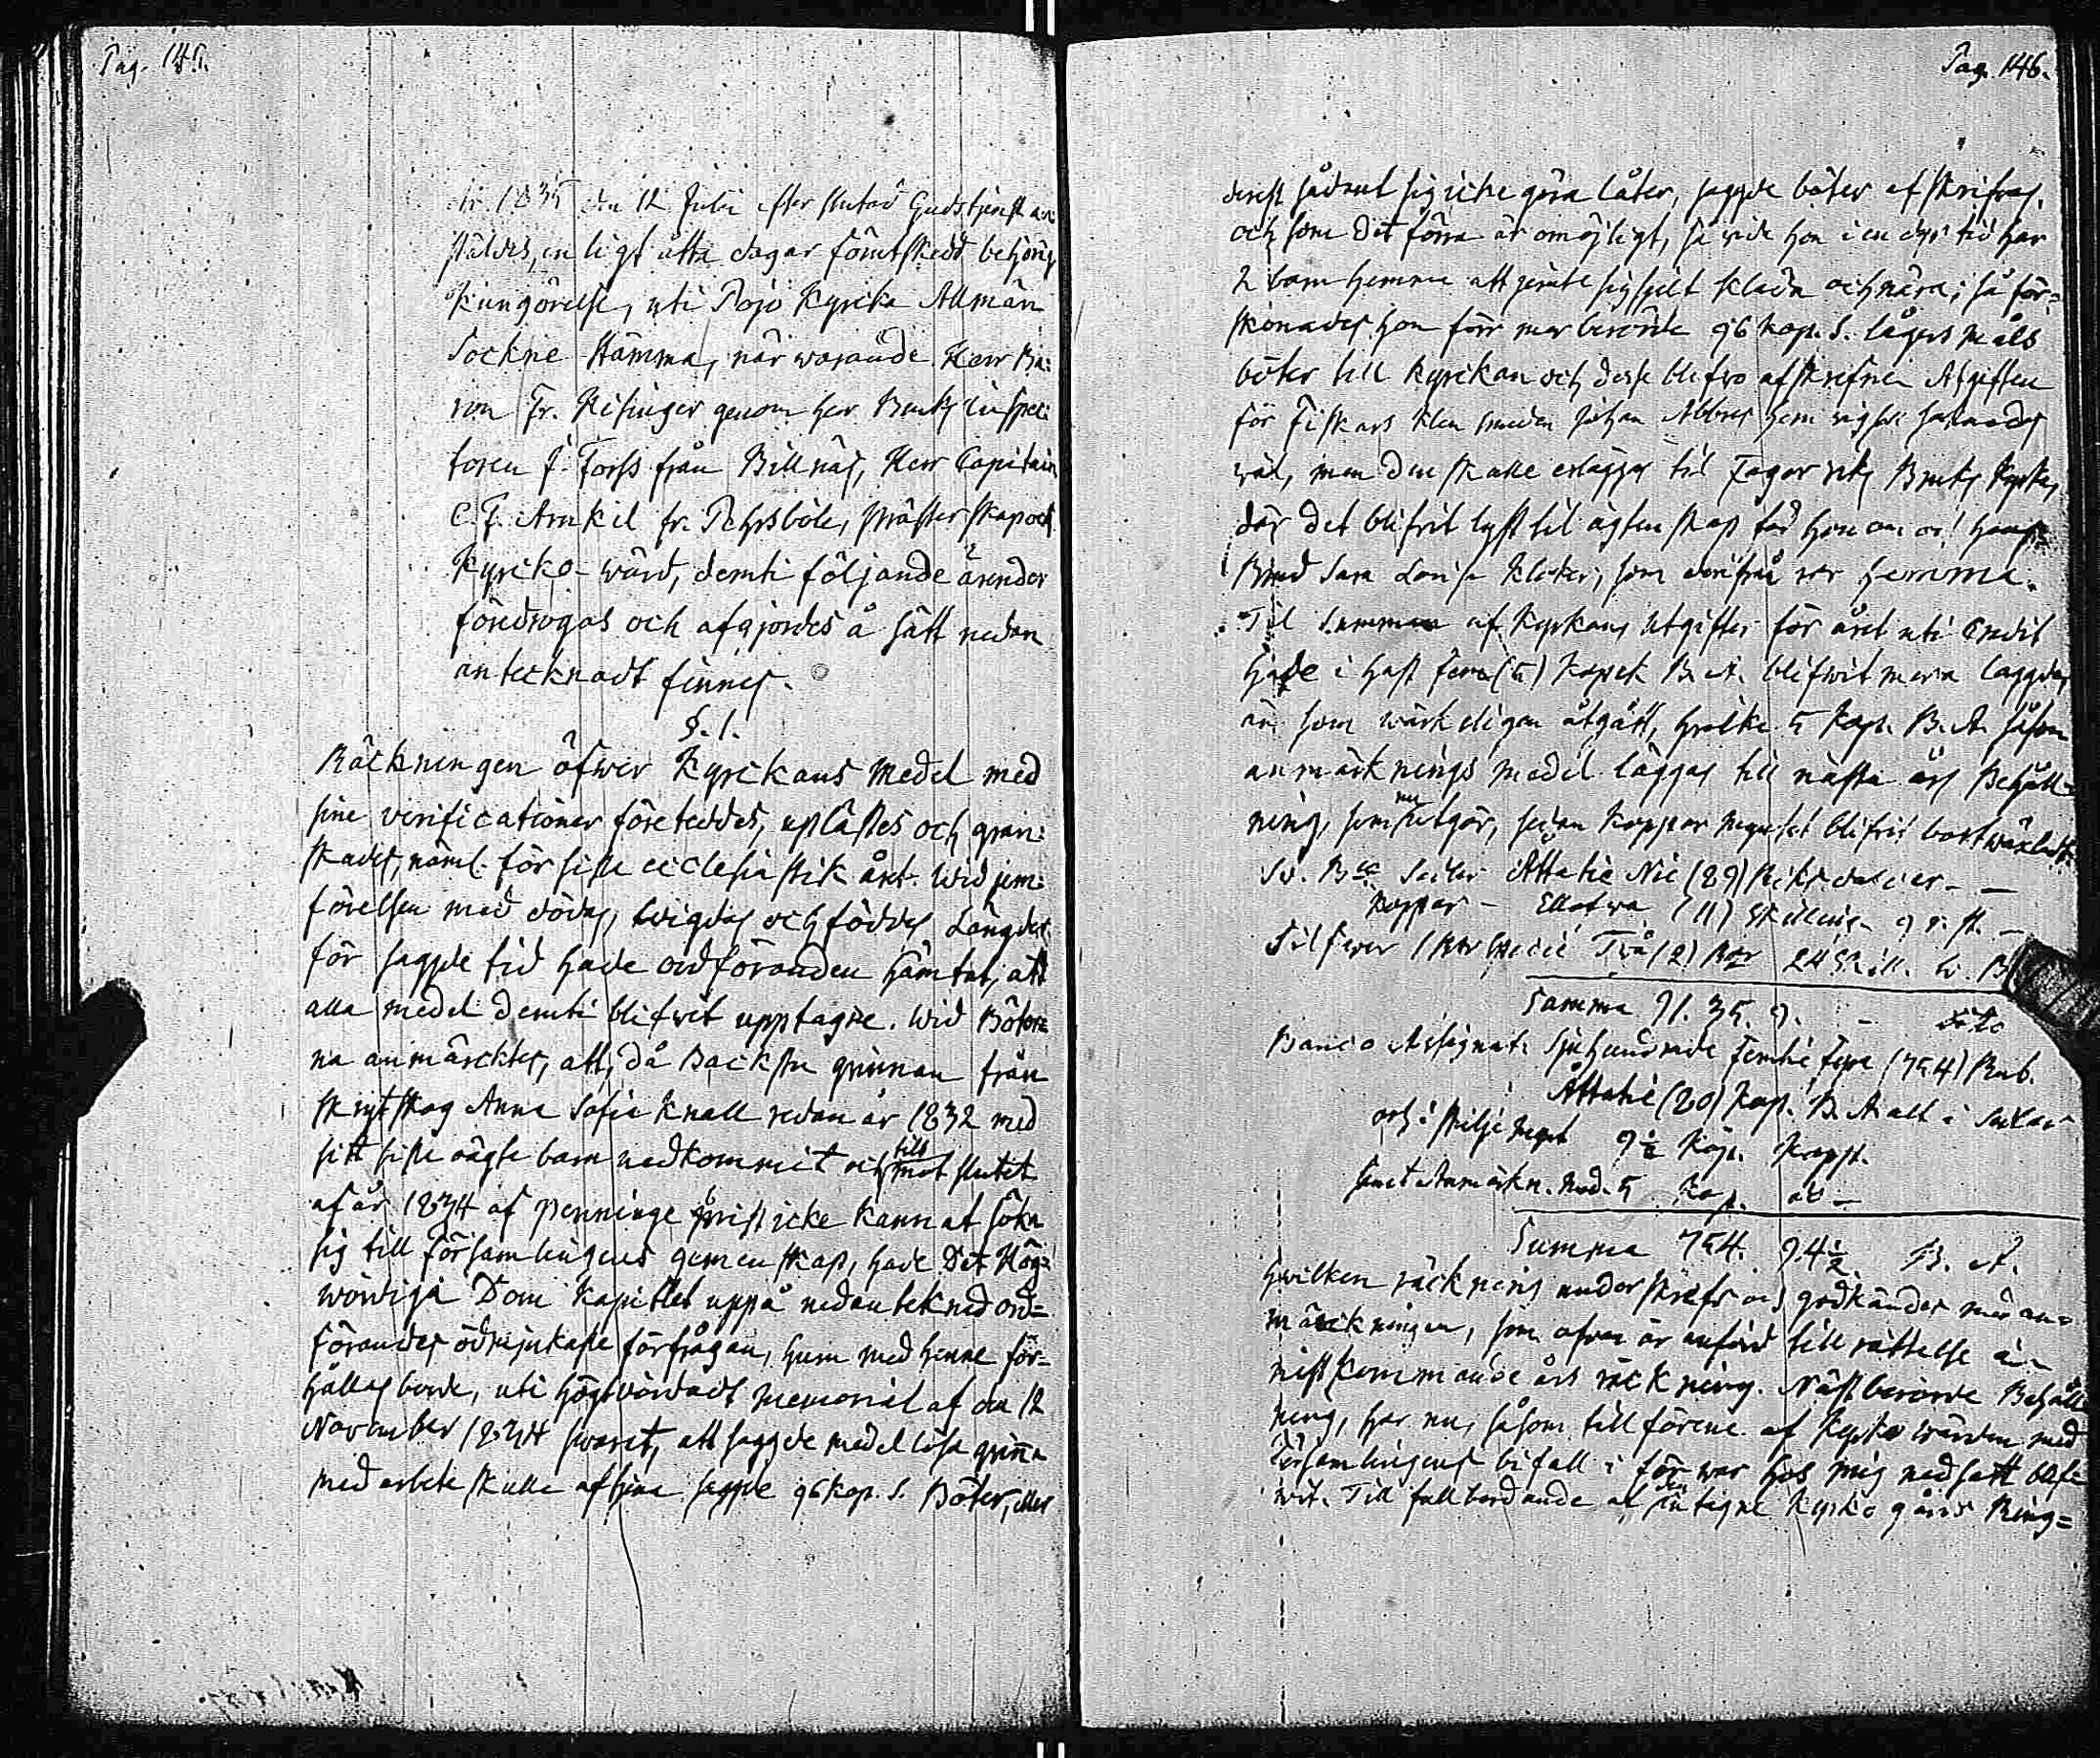 Pag. 145.
år 1835 den 12 Juli efter slutad Gudstjenst an=
stäldes, enligt åtta dagar förut skedd behörig
Kungörelse, uti Pojo Kyrka Allmän
Sockne Stämma, när warande Herr Ba=
ron Fr. Risinger genom herr Bruks Inspec=
toren J. Forss från Billnäs, Herr Capitain
C. F. Armkil fr. Pehrsböle, Prästerskap och
Kyrcko-wärd, demti följande ärender
föredrogos och afgjordes å sätt nedan
antecknadt finnes.
§. 1.
Räckningen öfwer Kyrckans medel med
sine verificationer företeddes, uplästes och gran=
skades, näml. för siste ecclesiastik året. Wid jem=
förelsen med dödas, wigdas och föddes Längder
för sagde tid hade ordföranden hämtat, att
alla medel demti blifwit upptagne. Wid Böter=
na anmärcktes, att, då Backstu qvinnan från
Anna Sofia Knall redan år 1832 med
sitt siste oägte barn nedkommit och tills mot slutet
af år 1834 af penninge brist icke kunnat söka
sig till Församlingens gemenskap, hade Det Hög=
wördiga Dom Kapitlet uppå nedanteknad ord=
förandes ödmjukaste förfrågan, huru med henne för=
hållas borde, uti högtvördadt Memorial af den 12
November 1834 swarat, att sagde medellösa qvinna
med arbete skulle aftjena sagde 96 kop. S. Böter, eller
Pag. 146.
derest sådant sig icke göra låter, sagde böter afskrifwas,
och som det förra är omöjligt, så wida hon i en dyr tid har
2 barn hemma att jemte sig sjelf kläda och nära; så för=
skonades hon för mer berörde 96 kop. S. lägersmåls
böter till Kyrckan och desse blefwo afskrefne. Afgiften
för Fiskars Klensmeden Johan hem wigsel saknades
wäl, men den skulle erläggas til Fagerviks Bruks Kyrka,
där det blifvit lyst til ägtenskap för honom och hans
Brud Sara Lovisa som derifrån var hemma.
Til Summan af Kyrkans Utgifter för året uti Credit
hade i hast fem (5) Kopek B. A. blifwit mera lagdes
än som wärkeligen åtgått, hvilke 5 Kop. B. A. såsom
anmärknings medel läggas till nästa års Behåll=
ning, som nu utgör, sedan Koppar myntet blifvit bortwäxladt:
Sv. Bco Sedlar Åttatie Nie (89) Riksdaler - —
Koppar - Ellofwa (11) Skilling 9 r. st. —
Silfwer 1 Rdr Specie Två (2) Rdr 24 Skill. Sv. B
Summa 91. 35. 9. - dito
Banco Assignat. Sjuhundrade Femtie Fyra (754) Rub.
Åttatie (80) Kop. B. A. alt i Sedlar
och i skilje mynt 9½ Kop. Kopp.
samt Anmärkn. Med. 5 Kop. dio —
Summa 754. 94½ B. A.
Hwilken räckning underskrefs och godkändes med an=
märckningen, som ofvan är anförd till rättelse i
nästkommande års räckning. Nästberörde Behåll=
ning, har nu, såsom tillförene af Kyrkowärden med
Församlingens bifall i förwar hos mig nedsatt blif=
wit. Till fullbordande af den Kyrko gårds Ring=